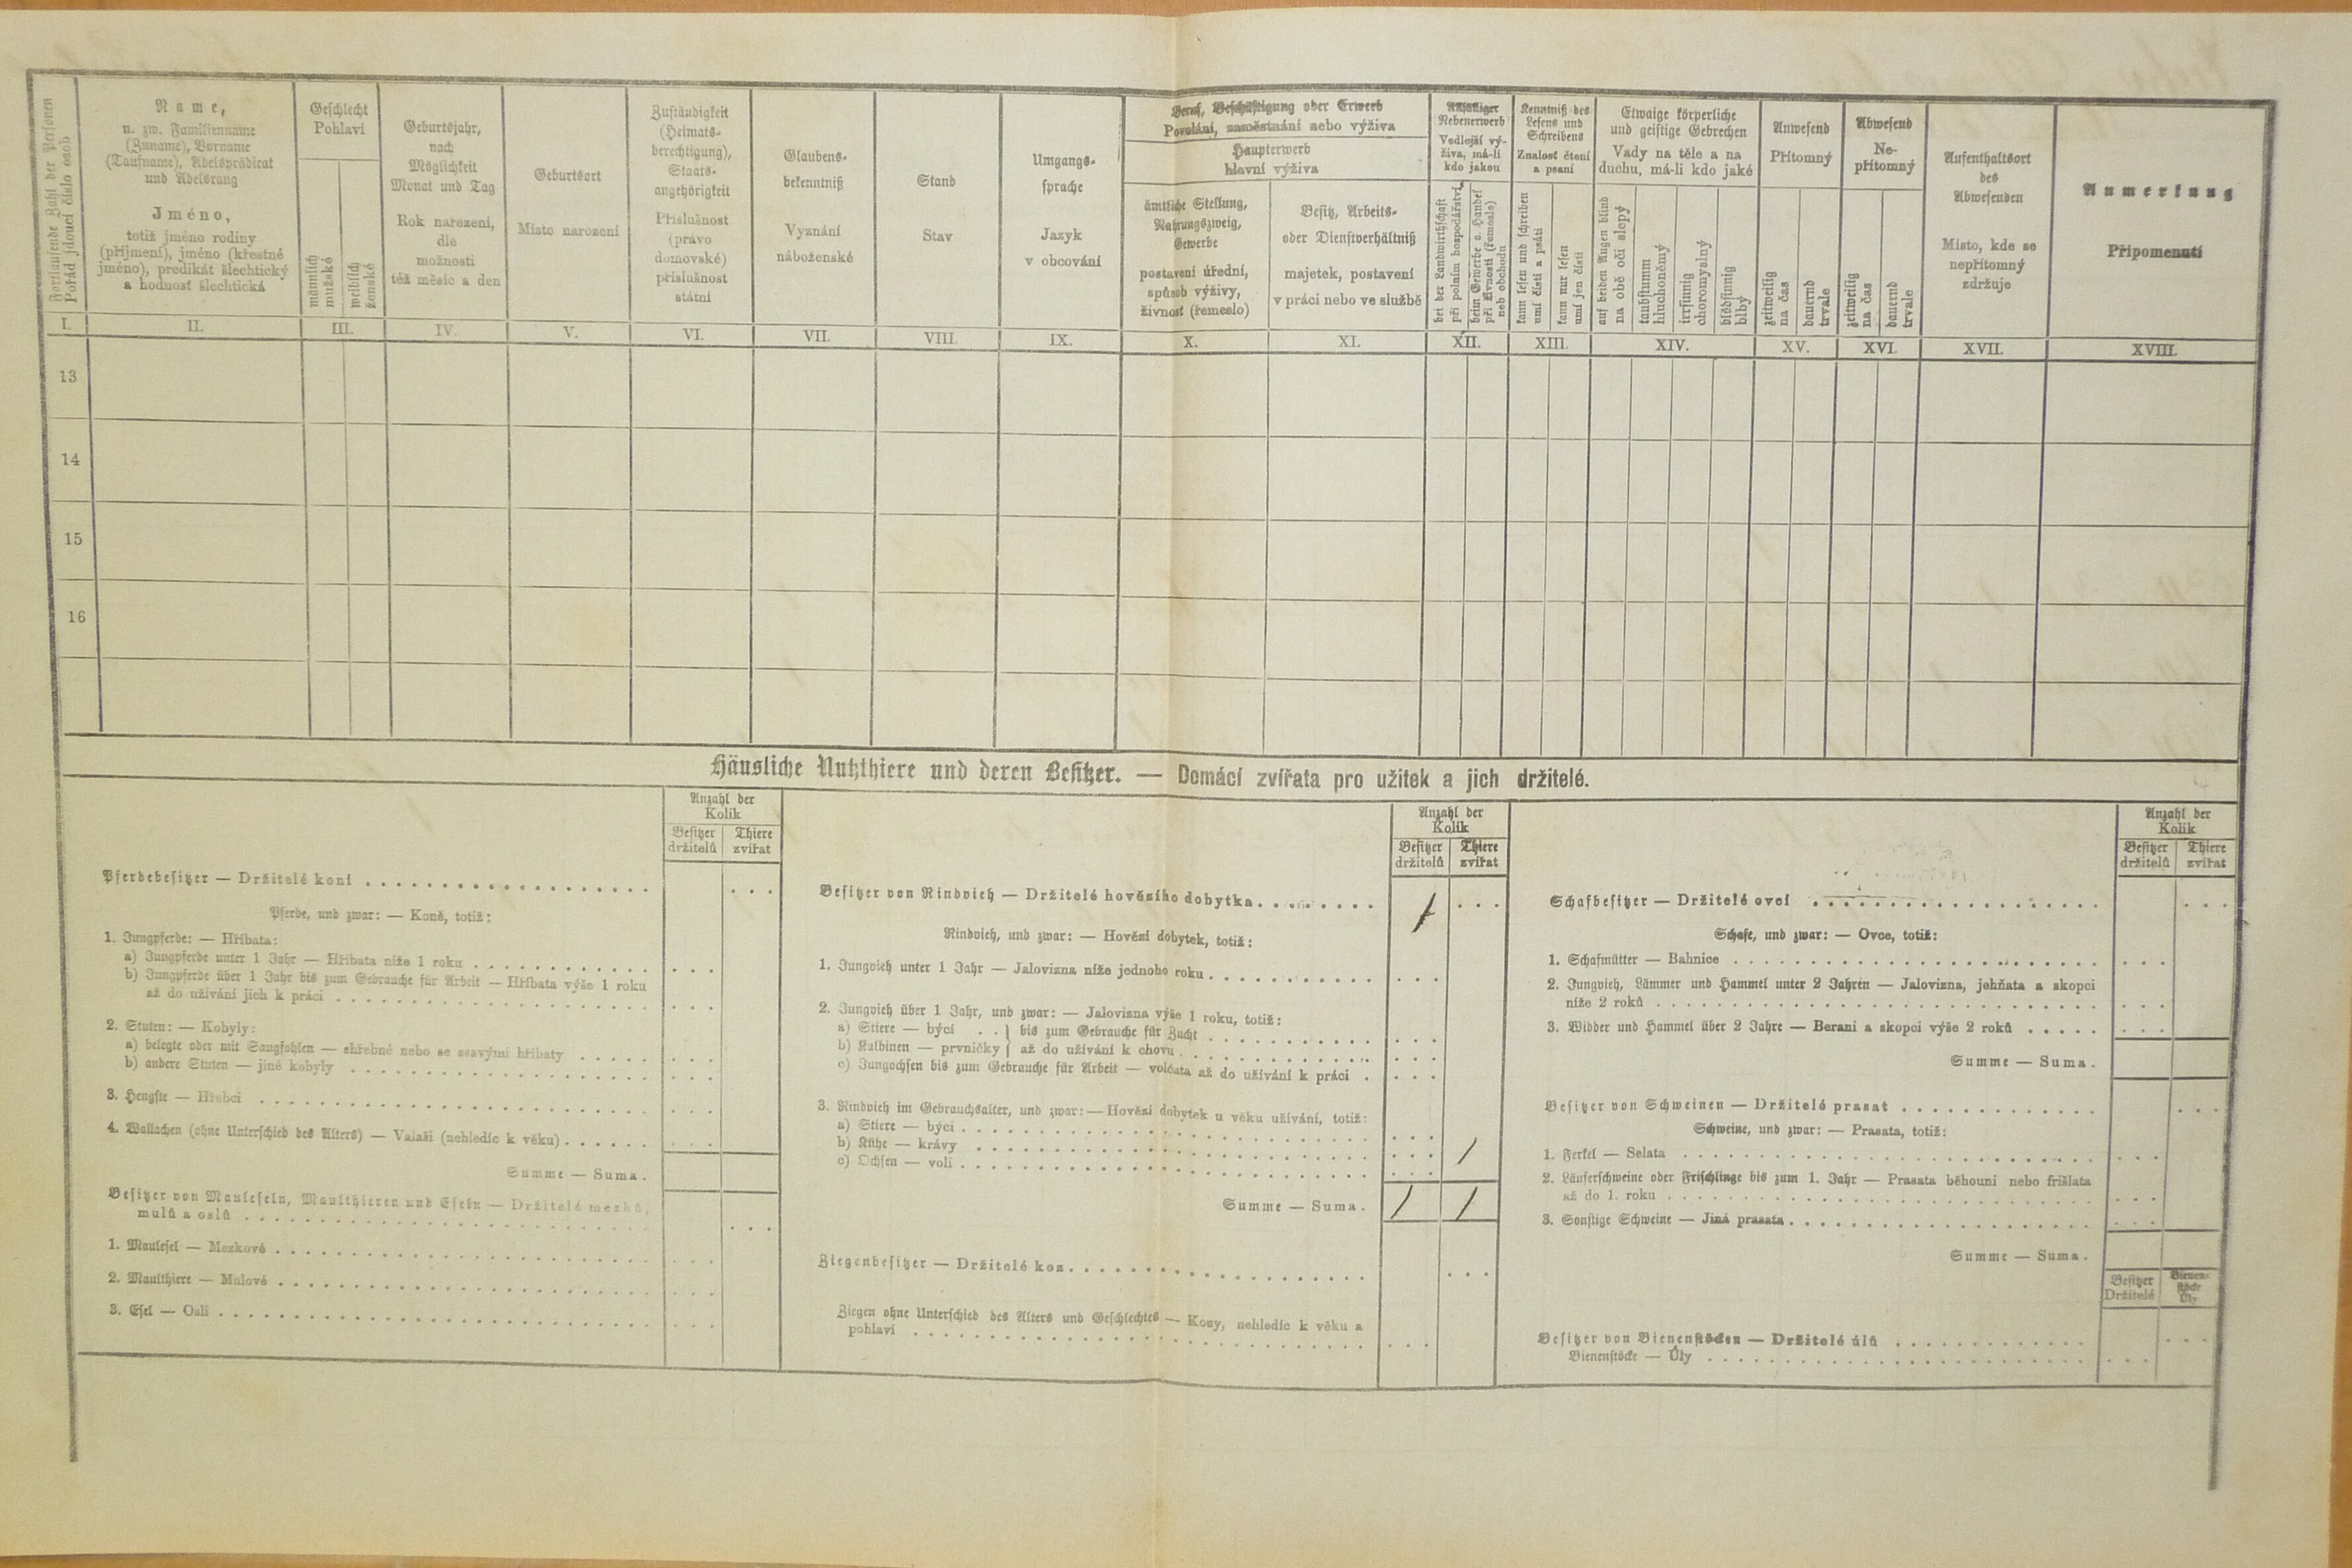 Fortlaufende Zahl der Personen
Pořád jdoucí číslo osob
Name,
u. zw. Familienname
(Zuname), Vorname
(Taufname), Adelsprädicat
und Adelsrang
Jméno,
totiž jméno rodiny
(příjmení), jméno (křestné
jméno), predikát šlechtický
a hodnosť šlechtická
Geschlecht
Pohlaví
männlich
mužské
weiblich
ženské
Geburtsjahr,
nach
Möglichkeit
Monat und Tag
Rok narození,
dle
možnosti
též měsíc a den
Geburtsort
Místo narození
Zuständigkeit
(Heimats-
berechtigung),
Staats-
angehörigkeit
Příslušnost
(právo
domovské)
příslušnost
státní
Glaubens-
bekenntniß
Vyznání
náboženské
Stand
Stav
Umgangs-
sprache
Jazyk
v obcování
Beruf, Beschäftigung oder Erwerb
Povolání, zaměstnání nebo výživa
Haupterwerb
hlavní výživa
ämtliche Stellung,
Nahrungszweig,
Gewerbe
postavení úřední,
spůsob výživy,
živnosť (řemeslo)
Besitz, Arbeits-
oder Dienstverhältniß
majetek, postavení
v práci nebo ve službě
Allfälliger
Nebenerwerb
Vedlejší vý-
živa, má-li
kdo jakou
bei der Landwirthschaft
při polním hospodářství
beim Gewerbe o. Handel
při živnosti (řemesle)
neb obchodu
Kenntniß des
Lesens und
Schreibens
Znalosť čtení
a psaní
kann lesen und schreiben
umí čísti a psáti
kann nur lesen
umí jen čísti
Etwaige körperliche
und geistige Gebrechen
Vady na těle a na
duchu, má-li kdo jaké
auf beiden Augen blind
na obě oči slepý
taubstumm
hluchoněmý
irrsinnig
choromyslný
blödsinnig
blbý
Anwesend
Přítomný
zeitweilig
na čas
dauernd
trvale
Abwesend
Ne-
přítomný
zeitweilig
na čas
dauernd
trvale
Aufenthaltsort
des
Abwesenden
Místo, kde se
nepřítomný
zdržuje
Anmerkung
Připomenutí
I. II. III. IV. V. VI. VII. VIII. IX. X. XI. XII. XIII. XIV. XV. XVI. XVII. XVIII.
13
14
15
16
Häusliche Nutzthiere und deren Besitzer. — Domácí zvířata pro užitek a jich držitelé.
Anzahl der
Kolik
Besitzer Thiere
držitelů zvířat
Pferdebesitzer — Držitelé koní
Pferde, und zwar: — Koně, totiž:
1. Jungpferde: — Hříbata:
a) Jungpferde unter 1 Jahr — Hříbata níže 1 roku
b) Jungpferde über 1 Jahr bis zum Gebrauche für Arbeit — Hříbata výše 1 roku
až do užívání jich k práci
2. Stuten: — Kobyly:
a) belegte oder mit Saugfohlen — shřebné nebo se ssavými hříbaty
b) andere Stuten — jiné kobyly
3. Hengste — Hřebci
4. Wallachen (ohne Unterschied des Alters) — Valaši (nehledíc k věku)
Summe — Suma.
Besitzer von Mauleseln, Maulthieren und Eseln — Držitelé mezků,
mulů a oslů
1. Maulesel — Mezkové
2. Maulthiere — Mulové
3. Esel — Osli
Anzahl der
Kolik
Besitzer Thiere
držitelů zvířat
Besitzer von Rindvieh — Držitelé hovězího dobytka. 1
Rindvieh, und zwar: — Hovězí dobytek, totiž:
1. Jungvieh unter 1 Jahr — Jalovizna níže jednoho roku
2. Jungvieh über 1 Jahr, und zwar: — Jalovizna výše 1 roku, totiž:
a) Stiere — býci . . } bis zum Gebrauche für Zucht
b) Kalbinen — prvničky } až do užívání k chovu
c) Jungochsen bis zum Gebrauche für Arbeit — volčata až do užívání k práci
3. Rindvieh im Gebrauchsalter, und zwar: — Hovězí dobytek u věku užívání, totiž:
a) Stiere — býci
b) Kühe — krávy 1
c) Ochsen — voli
Summe — Suma. 1 1
Ziegenbesitzer — Držitelé koz
Ziegen ohne Unterschied des Alters und Geschlechtes — Kozy, nehledíc k věku a
pohlaví
Anzahl der
Kolik
Besitzer Thiere
držitelů zvířat
Schafbesitzer — Držitelé ovcí
Schafe, und zwar: — Ovce, totiž:
1. Schafmütter — Bahnice
2. Jungvieh, Lämmer und Hammel unter 2 Jahren — Jalovizna, jehňata a skopci
níže 2 roků
3. Widder und Hammel über 2 Jahre — Berani a skopci výše 2 roků
Summe — Suma.
Besitzer von Schweinen — Držitelé prasat
Schweine, und zwar: — Prasata, totiž:
1. Ferkel — Selata
2. Läuferschweine oder Frischlinge bis zum 1. Jahr — Prasata běhouni nebo frišlata
až do 1. roku
3. Sonstige Schweine — Jiná prasata
Summe — Suma.
Besitzer Bienen-
Držitelé stöcke
Úly
Besitzer von Bienenstöcken — Držitelé úlů
Bienenstöcke — Úly